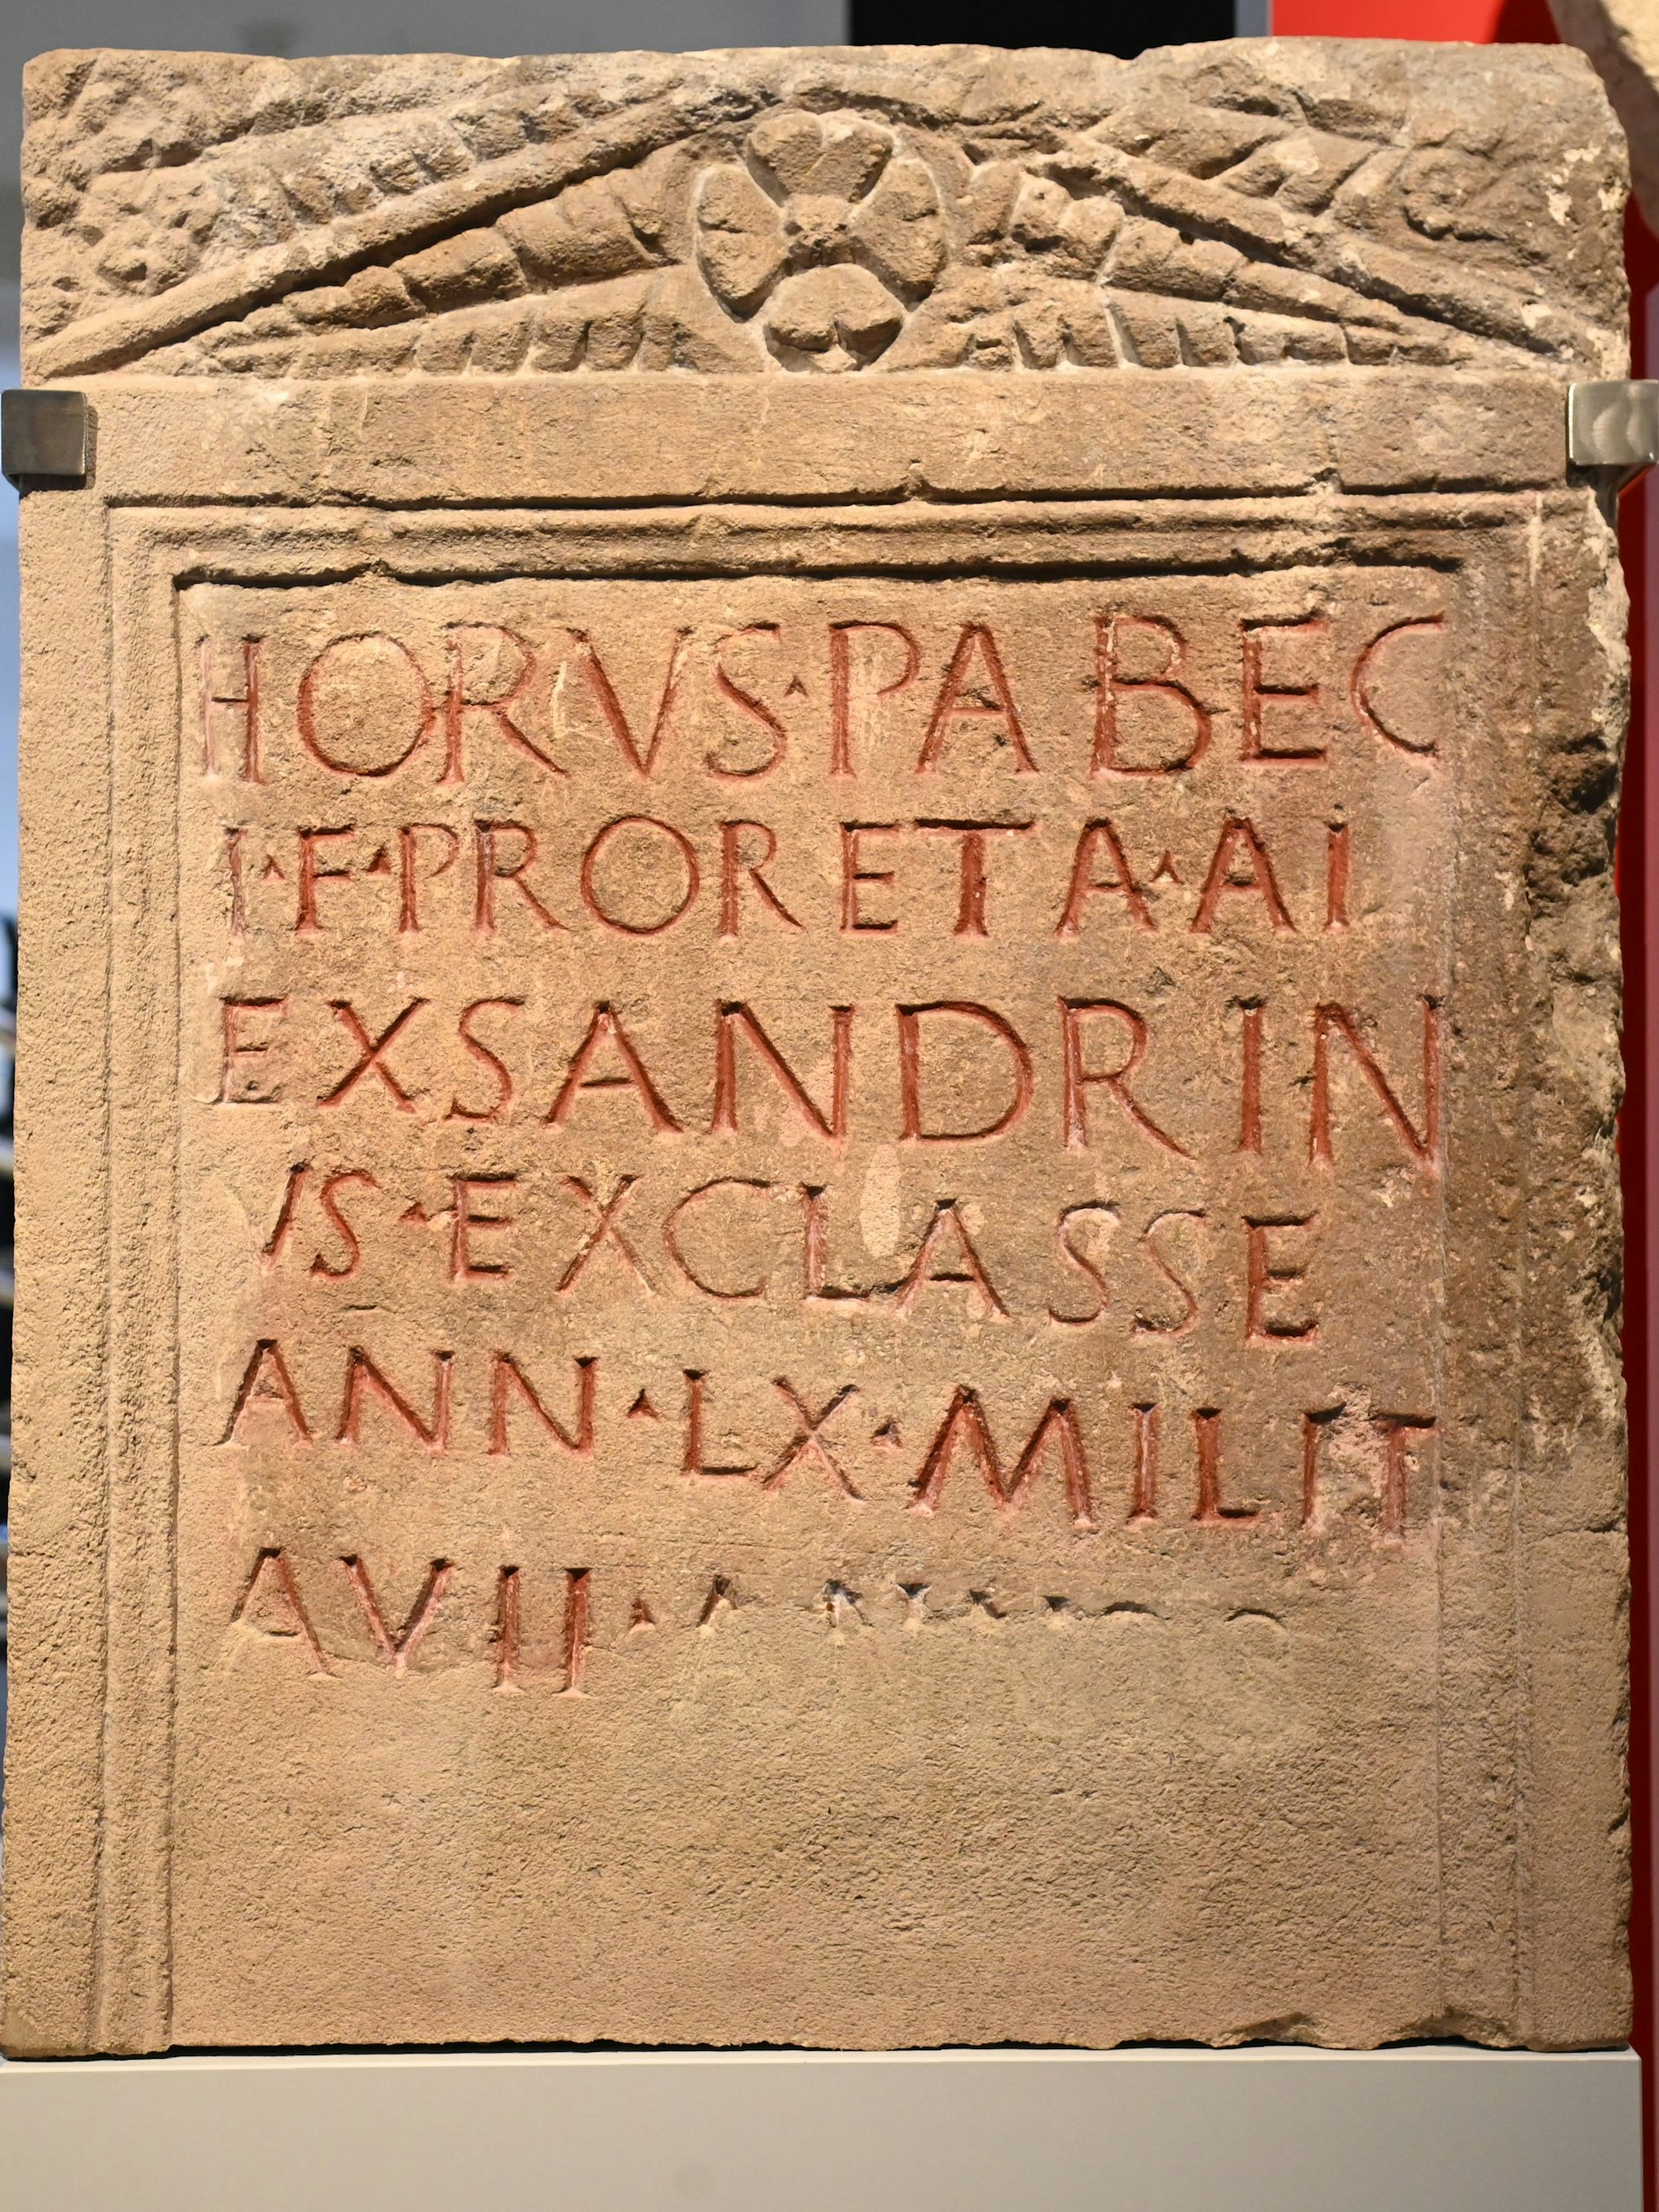 HORVS·PABEC
I·F·PRORETA·AL
EXSANDRIN
IS·EXCLASSE
ANN·LX·MILIT
AVII·A